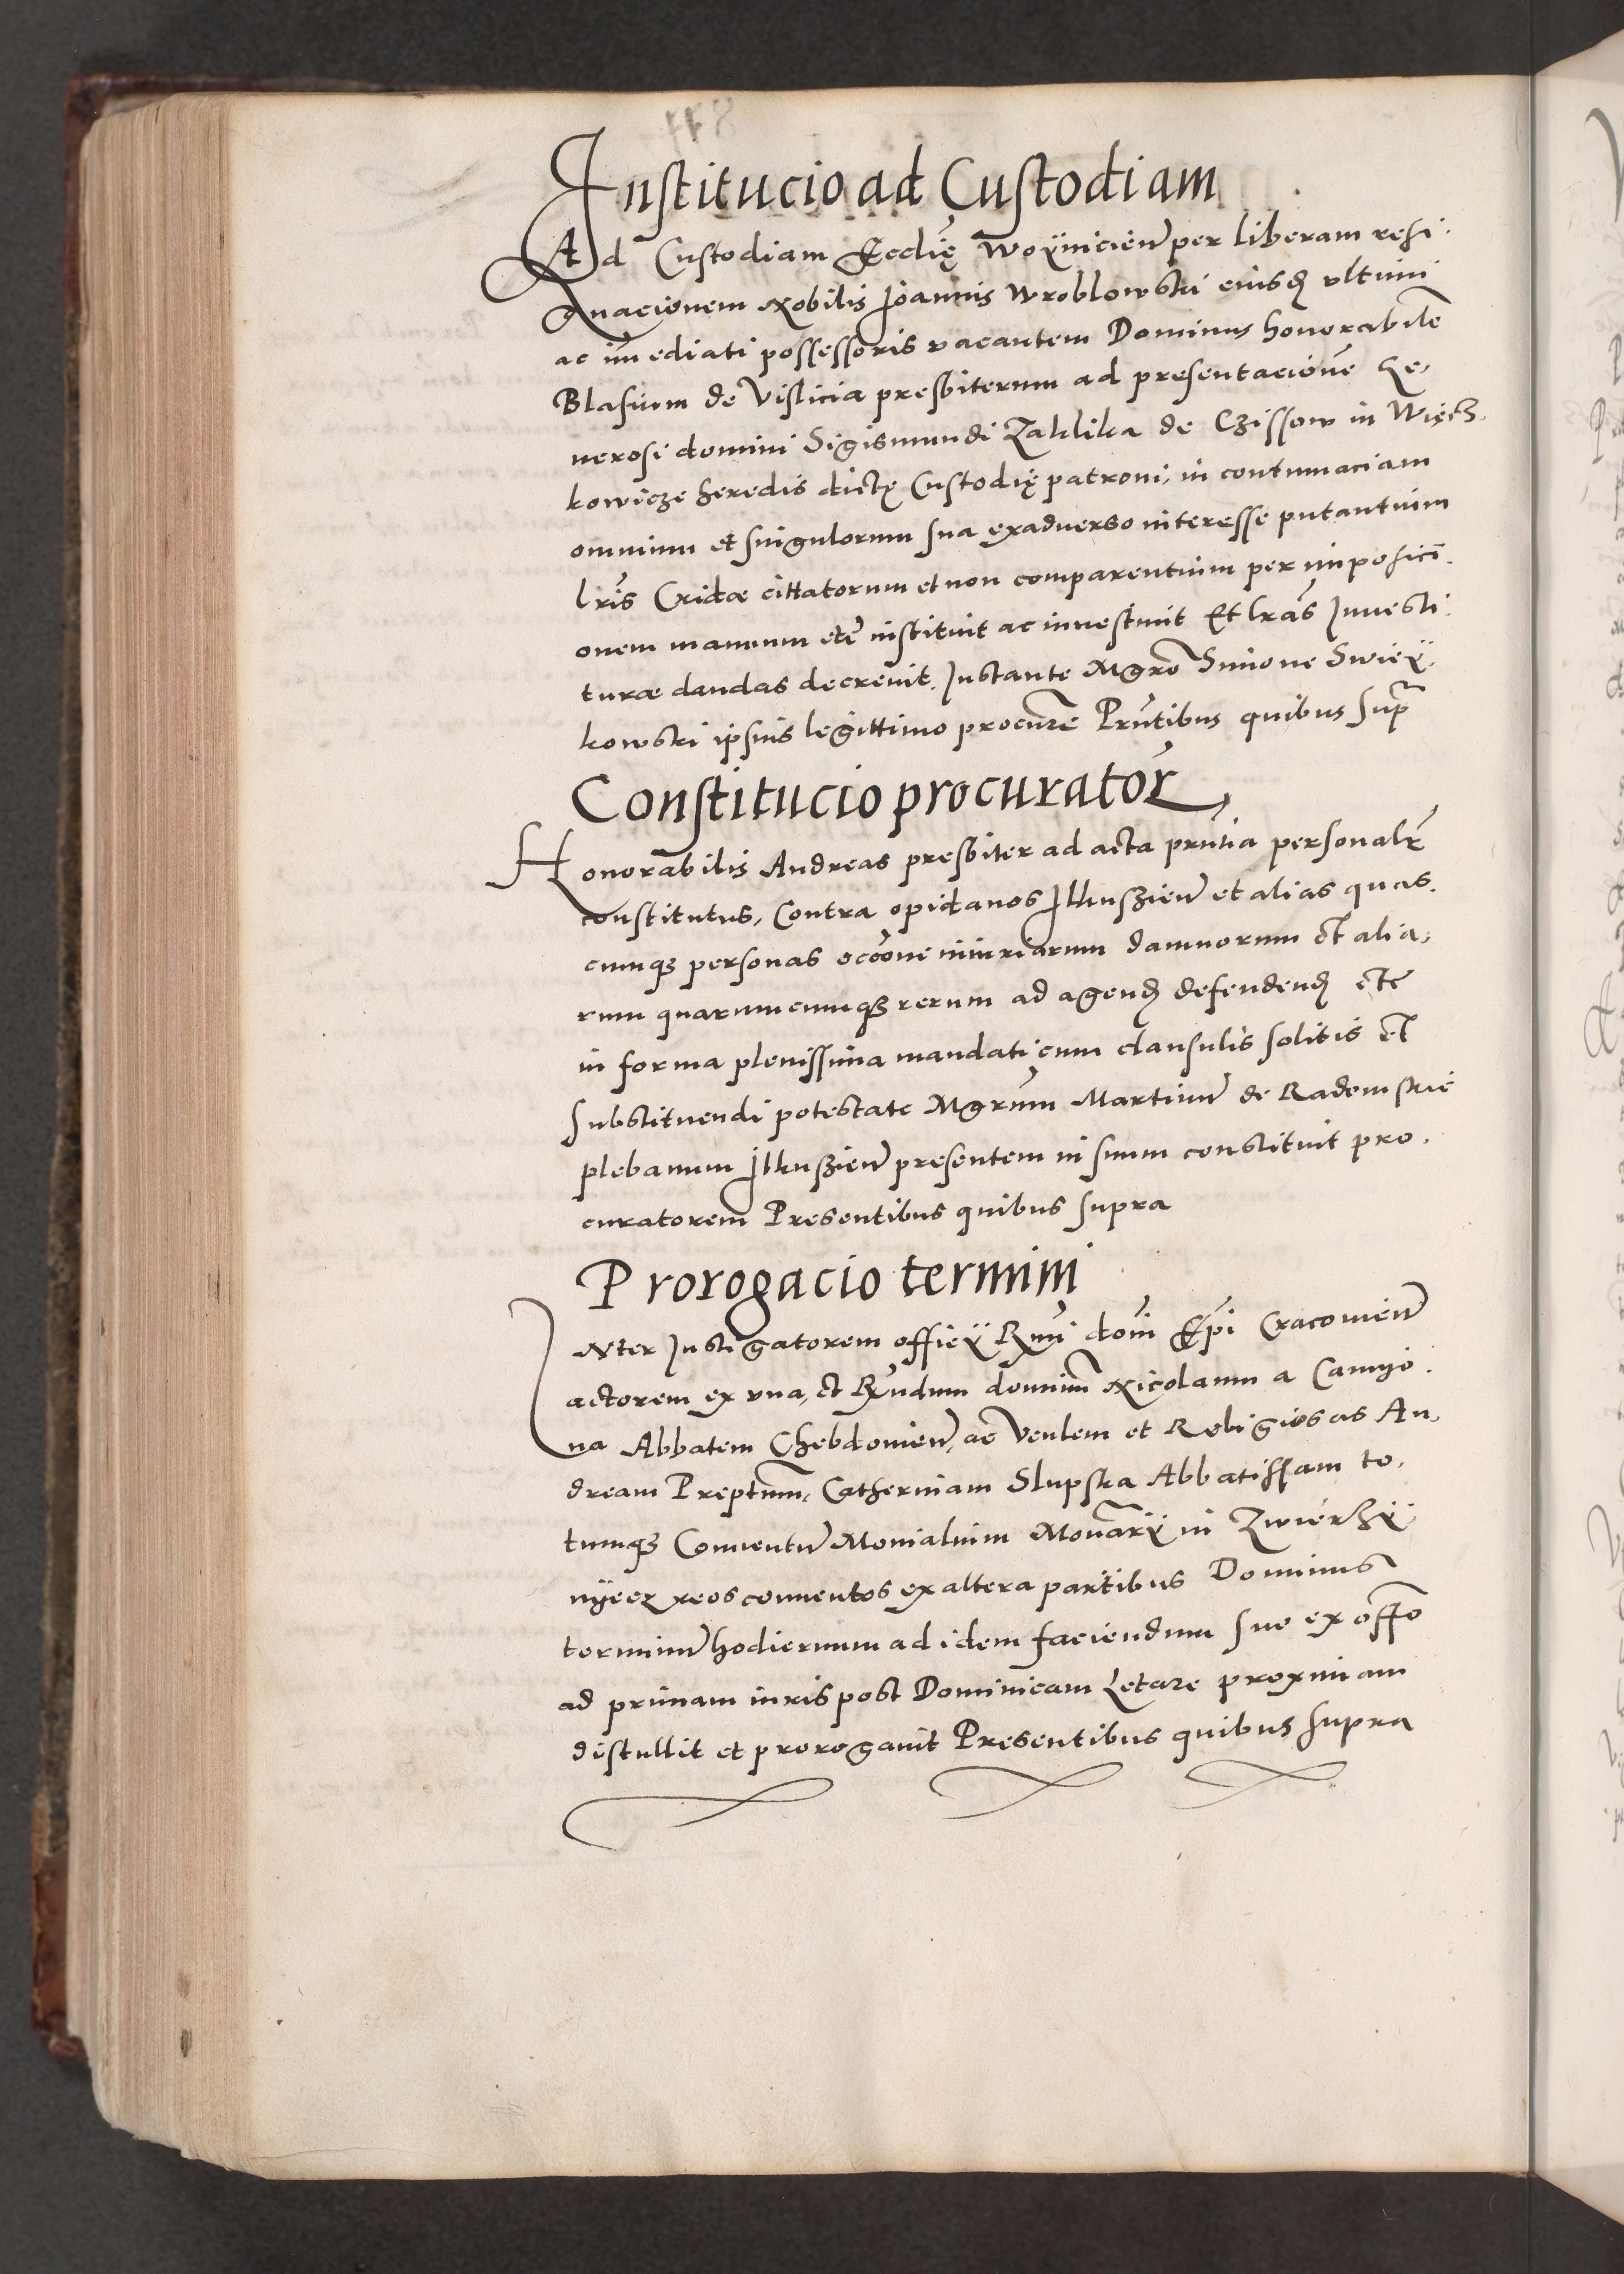 Institucio ad Custodiam
Ad Custodiam Ecclię Woÿnicien̄ per liberam resi-
gnacionem Nobilis Joannis Wroblowski eiusdꝫ vltimi
ac im̄ediati possessoris vacantem Dominus honorabilē
Blasium de Vislicia presbiterum ad presentacionē Ge-
nerosi domini Sigismundi Zaklika de Czissow in Więcz-
kowicze heredis dictę Custodię patroni, in contumaciam
omnium et singulorum sua exaduerso interesse putantium
lr̄is Cridæ cittatorum et non comparentium per imposici-
onem manuum etc̄ instituit ac inuestiuit Et lrās Inuesti-
turæ dandas decreuit. Instante Mgrō Simone Swieÿ-
kowski ipsius legittimo procurē Prn̄tibus quibus supr̄
Constitucio procurator̄
Honorabilis Andreas presbiter ad acta prn̄tia personalr̄
constitutus, Contra opidanos Ilkuszien̄ et alias quas-
cumqꝫ personas occōne iniuriarum damnorum et alia-
rum quarumcumqꝫ rerum ad agendꝫ defendendꝫ etc̄
in forma plenissima mandati cum clausulis solitis et
substituendi potestate Mgrūm Martinū de Radomskie
plebanum Ilkuszien̄ presentem in suum constituit pro-
curatorem Presentibus quibus supra
Prorogacio termini
Inter Instigatorem officÿ Rmī dom̄ Ep̄i Cracouien̄
actorem ex vna, et Rn̄dum dominū Nicolaum a Camyo-
na Abbatem Chebdouien̄, ac Venlem et Religiosas An-
dream Preptum̄, Catherinam Slupska Abbatissam to-
tumqꝫ Conuentū Monialium Monarÿ in Zwierzÿ-
nÿecz reos conuentos ex altera partibus Dominus
terminū hodiernum ad idem faciendum suo ex offo
ad primam iuris post Dominicam Letare proximam
distullit et prorogauit Presentibus quibus supra